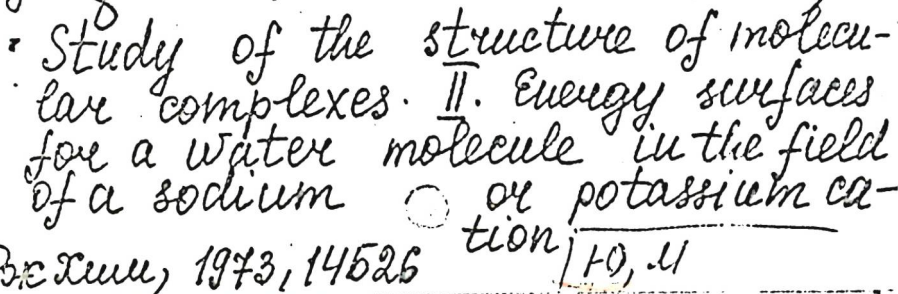 Study of the structure of molecu-
lar complexes. II. Energy surfaces
for a water molecule in the field
of a sodium or potassium ca-
tion
РЖХим, 1973, 14Б26 Ю, М